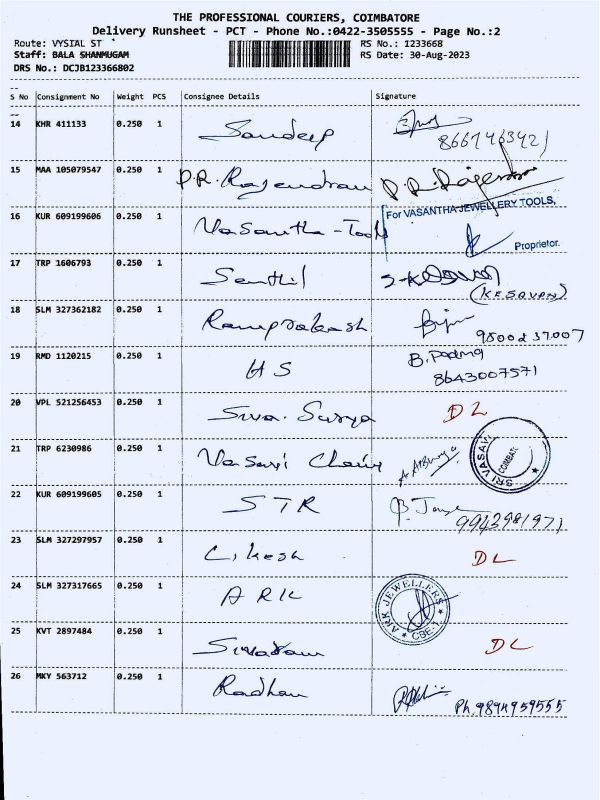 THE PROFESSIONAL COURIERS, COIMBATORE
Delivery Runsheet - PCT - Phone No.:0422-3505555 - Page No.:2
Route: VYSIAL ST RS No.: 1233668
Staff: BALA SHANMUGAM RS Date: 30-Aug-2023
DRS No.: DCJB123366802
S No Consignment No Weight PCS Consignee Details Signature
14 KHR 411133 0.250 1 Sandeep
15 MAA 105079547 0.250 1 P.R. Rajendran P.R. Rajendran
16 KUR 609199606 0.250 1 Vasantha - Tools For VASANTHA JEWELLERY TOOLS,
Proprietor.
17 TRP 1606793 0.250 1 Senthil
(KESAVAN)
18 SLM 327362182 0.250 1 Ramprakash
19 RMD 1120215 0.250 1 HS B. Padma
8643007571
20 VPL 521256453 0.250 1 Siva. Surya DL
21 TRP 6230986 0.250 1 Vasavi Chain SRI VASAVI
22 KUR 609199605 0.250 1 STR
9943981971
23 SLM 327297957 0.250 1 DL
24 SLM 327317665 0.250 1 ARK ARK JEWELLERS CBE-1
25 KVT 2897484 0.250 1 Sivaram DL
26 MKY 563712 0.250 1
Ph. 9894959555